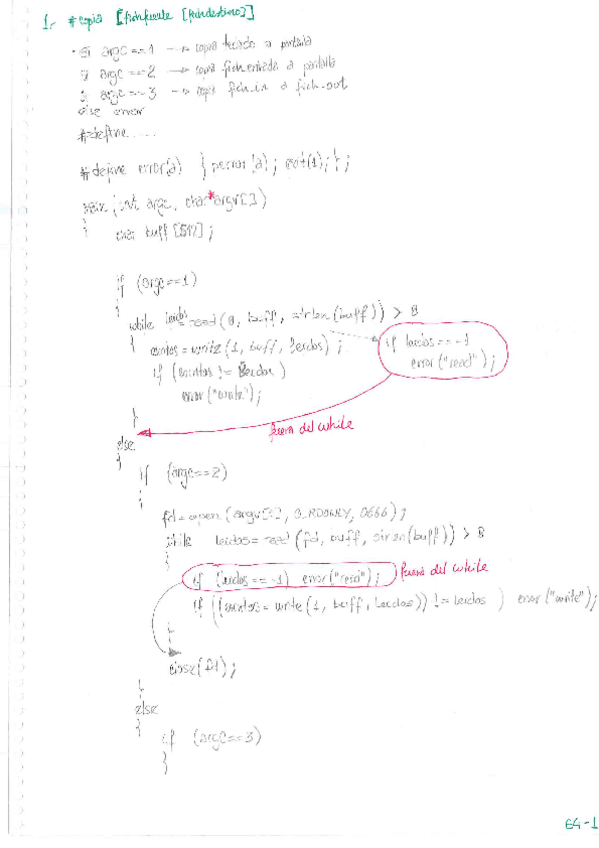 1.- #copia [fichfuente [fichdestino]]
· Si argc==1 → copia teclado a pantalla
Si argc==2 → copia fich.entrada a pantalla
Si argc==3 → copia fich_in a fich_out
else error
#define.....
#define error(a) { perror(a); exit(1); };
main (int argc, char *argv[])
{ char buff [512];
if (argc==1)
{
while leidos=read(0, buff, strlen(buff)) > 0
{ escritos=write(1, buff, leidos);
if leidos == -1
error("read");
if (escritos != leidos)
error("write");
}
fuera del while
else
{
if (argc==2)
{
fd=open(argv[1], O_RDONLY, 0666);
while leidos=read(fd, buff, strlen(buff)) > 0
{
if (leidos == -1) error("read"); fuera del while
if ((escritos=write(1, buff, leidos)) != leidos ) error("write");
}
close(fd);
}
else
{
if (argc==3)
}
EG-1